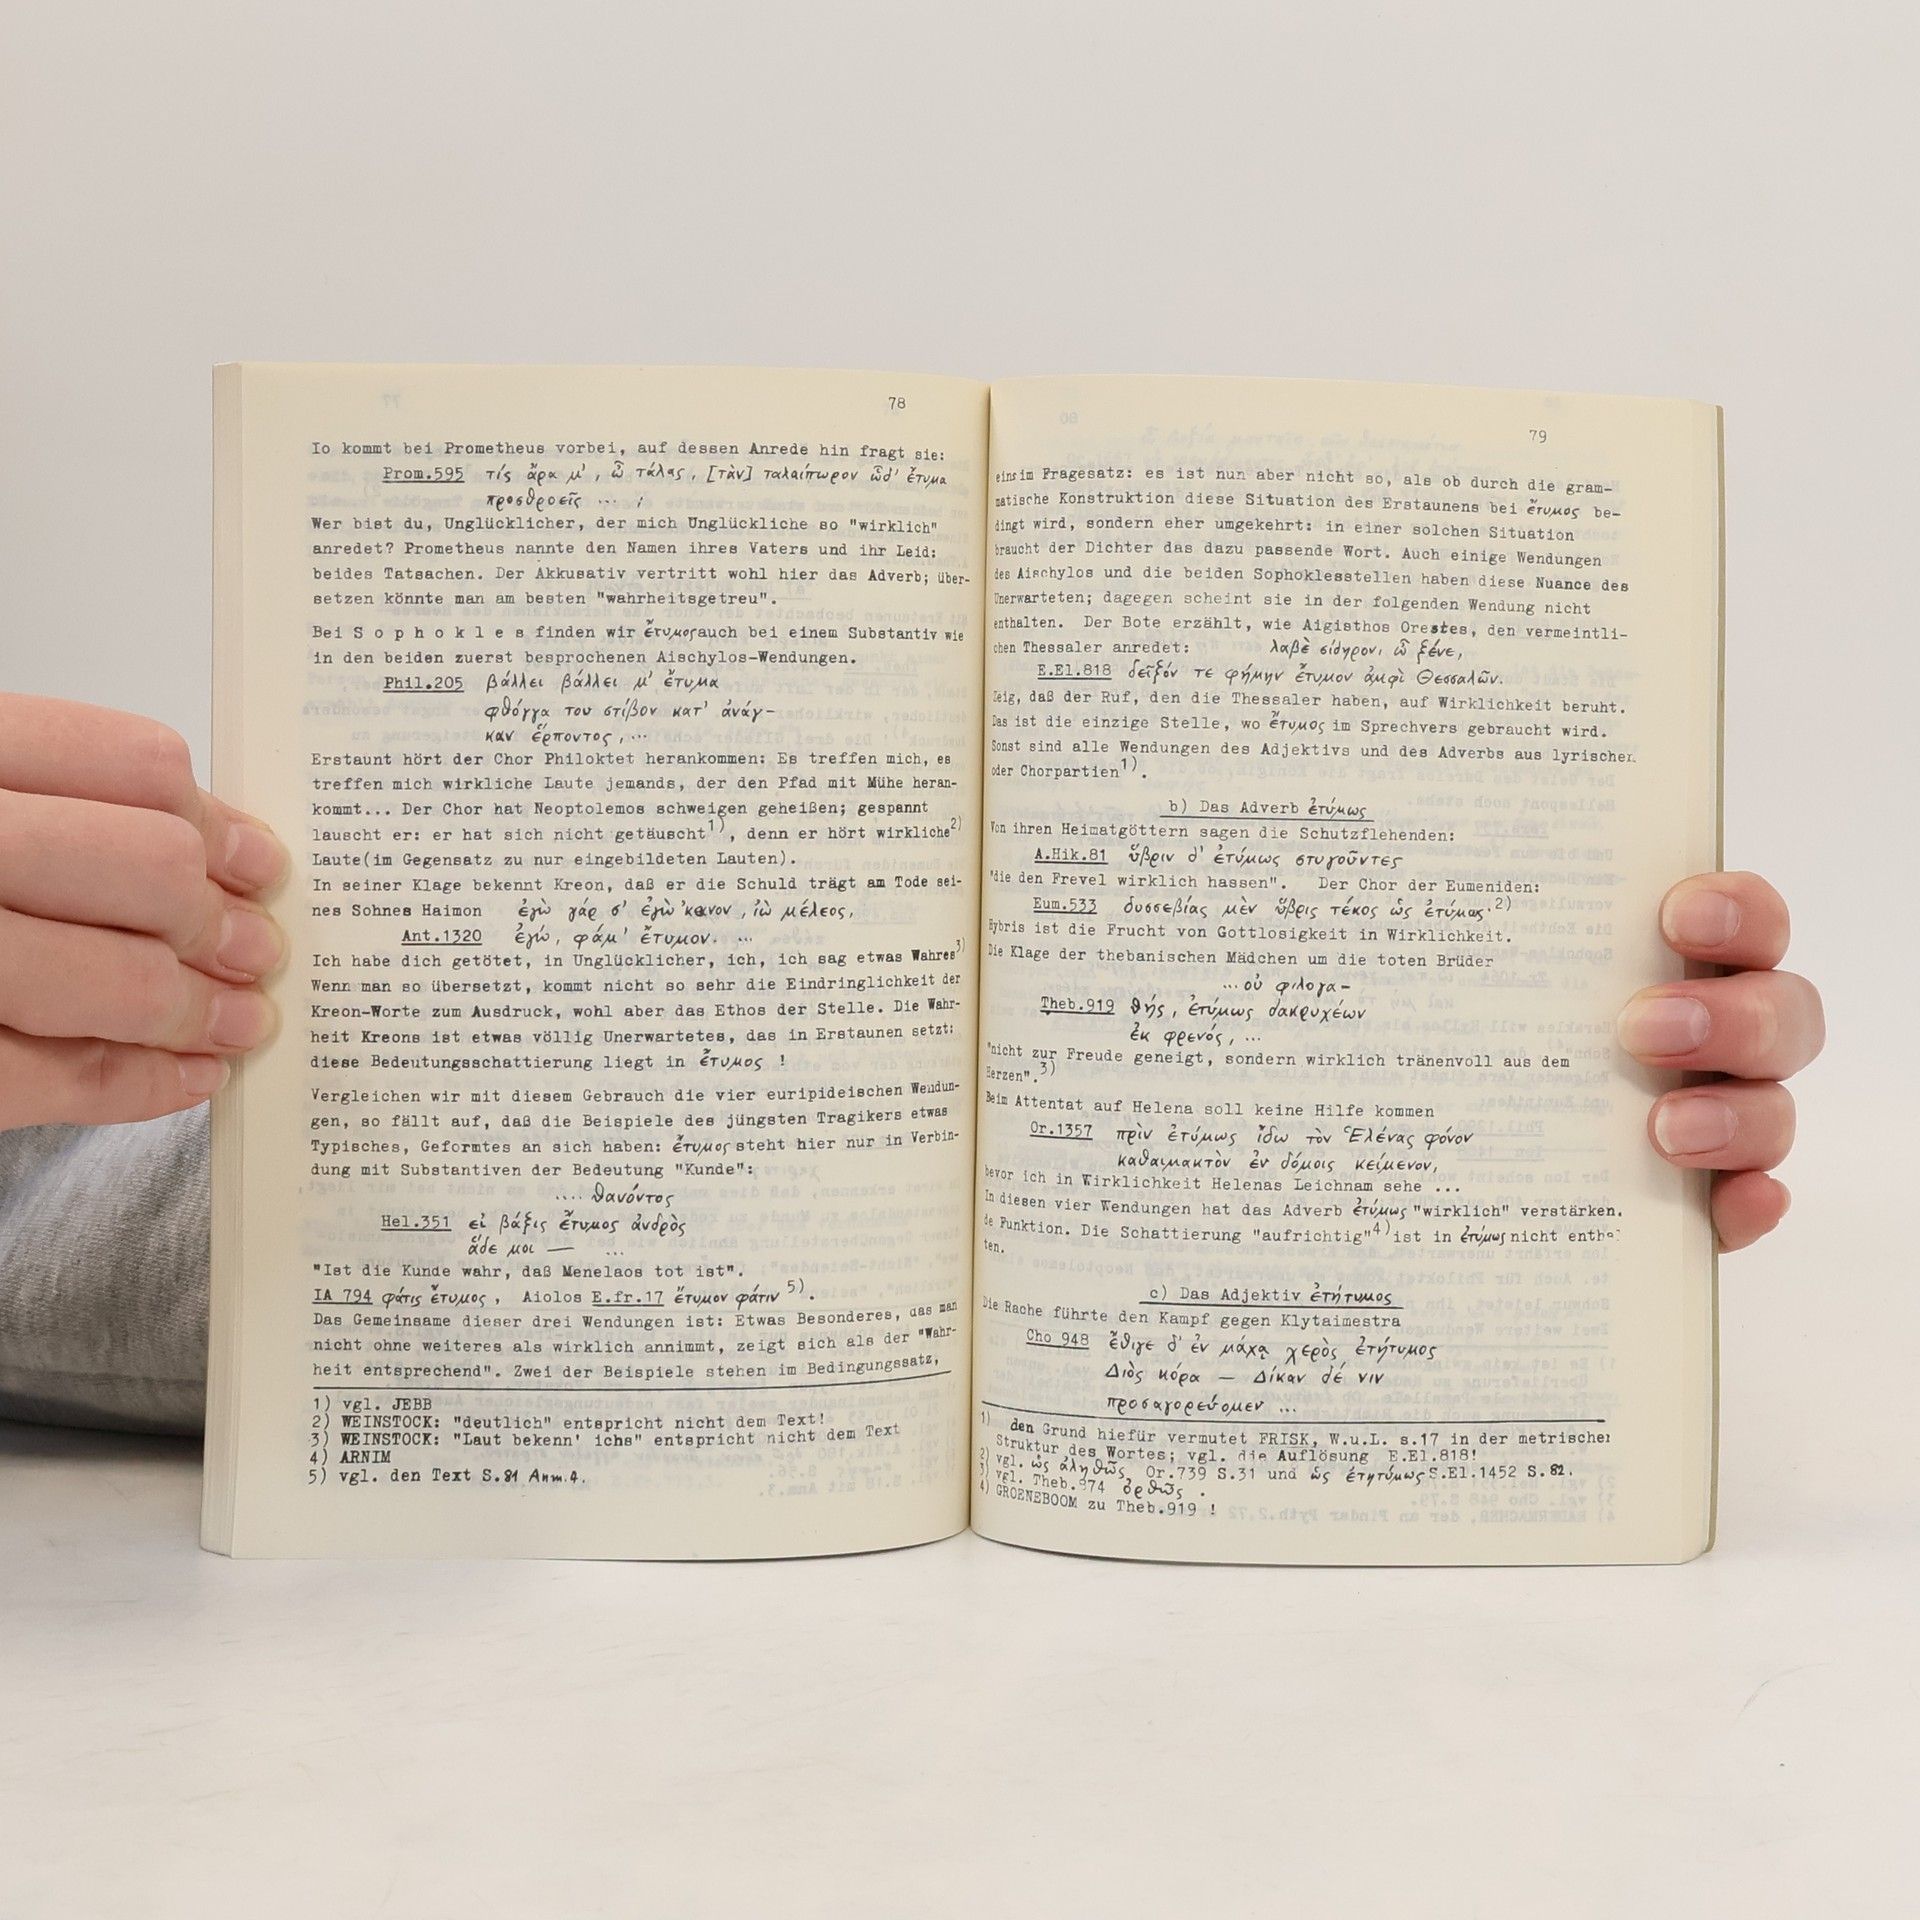 78
Io kommt bei Prometheus vorbei, auf dessen Anrede hin fragt sie:
Prom.595 τίς ἄρα μ', ὦ τάλας, [τὰν] ταλαίπωρον ὧδ' ἔτυμα
προσθροεῖς ... ;
Wer bist du, Unglücklicher, der mich Unglückliche so "wirklich"
anredet? Prometheus nannte den Namen ihres Vaters und ihr Leid:
beides Tatsachen. Der Akkusativ vertritt wohl hier das Adverb; über-
setzen könnte man am besten "wahrheitsgetreu".
Bei S o p h o k l e s finden wir ἔτυμος auch bei einem Substantiv wie
in den beiden zuerst besprochenen Aischylos-Wendungen.
Phil.205 βάλλει βάλλει μ' ἔτυμα
φθόγγα του στίβον κατ' ἀνάγ-
καν ἕρποντος, ...
Erstaunt hört der Chor Philoktet herankommen: Es treffen mich, es
treffen mich wirkliche Laute jemands, der den Pfad mit Mühe heran-
kommt... Der Chor hat Neoptolemos schweigen geheißen; gespannt
lauscht er: er hat sich nicht getäuscht1), denn er hört wirkliche2)
Laute(im Gegensatz zu nur eingebildeten Lauten).
In seiner Klage bekennt Kreon, daß er die Schuld trägt am Tode sei-
nes Sohnes Haimon ἐγὼ γάρ σ' ἐγὼ 'κανον, ἰὼ μέλεος,
Ant.1320 ἐγώ, φάμ' ἔτυμον. ...
Ich habe dich getötet, in Unglücklicher, ich, ich sag etwas Wahres3)
Wenn man so übersetzt, kommt nicht so sehr die Eindringlichkeit der
Kreon-Worte zum Ausdruck, wohl aber das Ethos der Stelle. Die Wahr-
heit Kreons ist etwas völlig Unerwartetes, das in Erstaunen setzt:
diese Bedeutungsschattierung liegt in ἔτυμος !
Vergleichen wir mit diesem Gebrauch die vier euripideischen Wendun-
gen, so fällt auf, daß die Beispiele des jüngsten Tragikers etwas
Typisches, Geformtes an sich haben: ἔτυμος steht hier nur in Verbin-
dung mit Substantiven der Bedeutung "Kunde":
.... θανόντος
Hel.351 εἰ βάξις ἔτυμος ἀνδρὸς
ἅδε μοι — ...
"Ist die Kunde wahr, daß Menelaos tot ist".
IA 794 φάτις ἔτυμος, Aiolos E.fr.17 ἔτυμον φάτιν 5).
Das Gemeinsame dieser drei Wendungen ist: Etwas Besonderes, das man
nicht ohne weiteres als wirklich annimmt, zeigt sich als der "Wahr-
heit entsprechend". Zwei der Beispiele stehen im Bedingungssatz,
1) vgl. JEBB
2) WEINSTOCK: "deutlich" entspricht nicht dem Text!
3) WEINSTOCK: "Laut bekenn' ichs" entspricht nicht dem Text
4) ARNIM
5) vgl. den Text S.81 Anm.4.
79
eins im Fragesatz: es ist nun aber nicht so, als ob durch die gram-
matische Konstruktion diese Situation des Erstaunens bei ἔτυμος be-
dingt wird, sondern eher umgekehrt: in einer solchen Situation
braucht der Dichter das dazu passende Wort. Auch einige Wendungen
des Aischylos und die beiden Sophoklesstellen haben diese Nuance des
Unerwarteten; dagegen scheint sie in der folgenden Wendung nicht
enthalten. Der Bote erzählt, wie Aigisthos Orestes, den vermeintli-
chen Thessaler anredet: λαβὲ σίδηρον, ὦ ξένε,
E.El.818 δεῖξόν τε φήμην ἔτυμον ἀμφὶ Θεσσαλῶν.
Zeig, daß der Ruf, den die Thessaler haben, auf Wirklichkeit beruht.
Das ist die einzige Stelle, wo ἔτυμος im Sprechvers gebraucht wird.
Sonst sind alle Wendungen des Adjektivs und des Adverbs aus lyrischen
oder Chorpartien1).
b) Das Adverb ἐτύμως
Von ihren Heimatgöttern sagen die Schutzflehenden:
A.Hik.81 ὕβριν δ' ἐτύμως στυγοῦντες
"die den Frevel wirklich hassen". Der Chor der Eumeniden:
Eum.533 δυσσεβίας μὲν ὕβρις τέκος ὡς ἐτύμως.2)
Hybris ist die Frucht von Gottlosigkeit in Wirklichkeit.
Die Klage der thebanischen Mädchen um die toten Brüder
...οὐ φιλογα-
Theb.919 θής, ἐτύμως δακρυχέων
ἐκ φρενός, ...
"nicht zur Freude geneigt, sondern wirklich tränenvoll aus dem
Herzen".3)
Beim Attentat auf Helena soll keine Hilfe kommen
Or.1357 πρὶν ἐτύμως ἴδω τὸν Ἑλένας φόνον
καθαιμακτὸν ἐν δόμοις κείμενον,
bevor ich in Wirklichkeit Helenas Leichnam sehe ...
In diesen vier Wendungen hat das Adverb ἐτύμως "wirklich" verstärken.
de Funktion. Die Schattierung "aufrichtig"4) ist in ἐτύμως nicht enthal
ten.
c) Das Adjektiv ἐτήτυμος
Die Rache führte den Kampf gegen Klytaimestra
Cho 948 ἔθιγε δ' ἐν μάχᾳ χερὸς ἐτήτυμος
Διὸς κόρα — Δίκαν δέ νιν
προσαγορεύομεν ...
1) den Grund hiefür vermutet FRISK, W.u.L. s.17 in der metrischen
Struktur des Wortes; vgl. die Auflösung E.El.818!
2) vgl. ὡς ἀληθῶς Or.739 S.31 und ὡς ἐτητύμως S.El.1452 S.82.
3) vgl. Theb.974 ὀρθῶς .
4) GROENEBOOM zu Theb.919 !